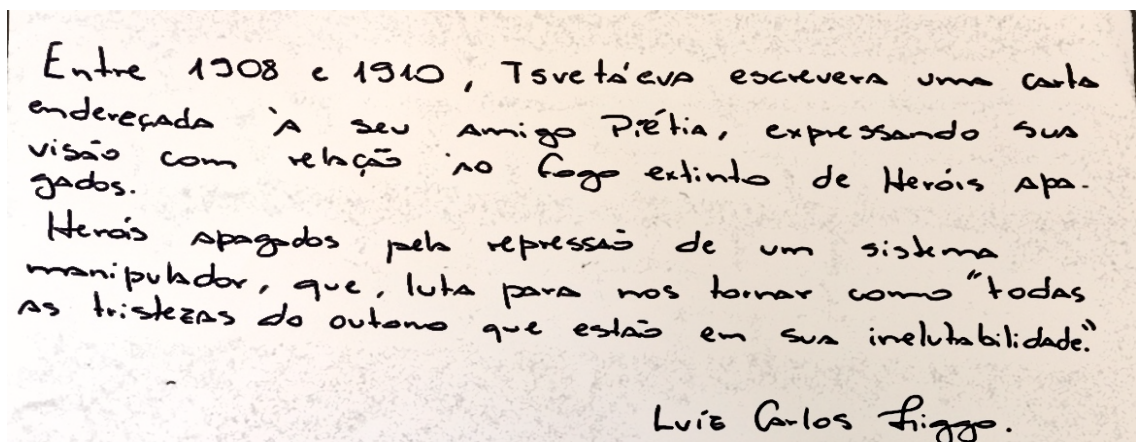 Entre 1908 e 1910, Tsvetáeva escrevera uma carta
endereçada à seu amigo Piétia, expressando sua
visão com relação ao fogo extinto de Heróis apa-
gados.
Heróis apagados pela repressão de um sistema
manipulador, que, luta para nos tornar como "todas
as tristezas do outono que estão em sua inelutabilidade."
Luiz Carlos